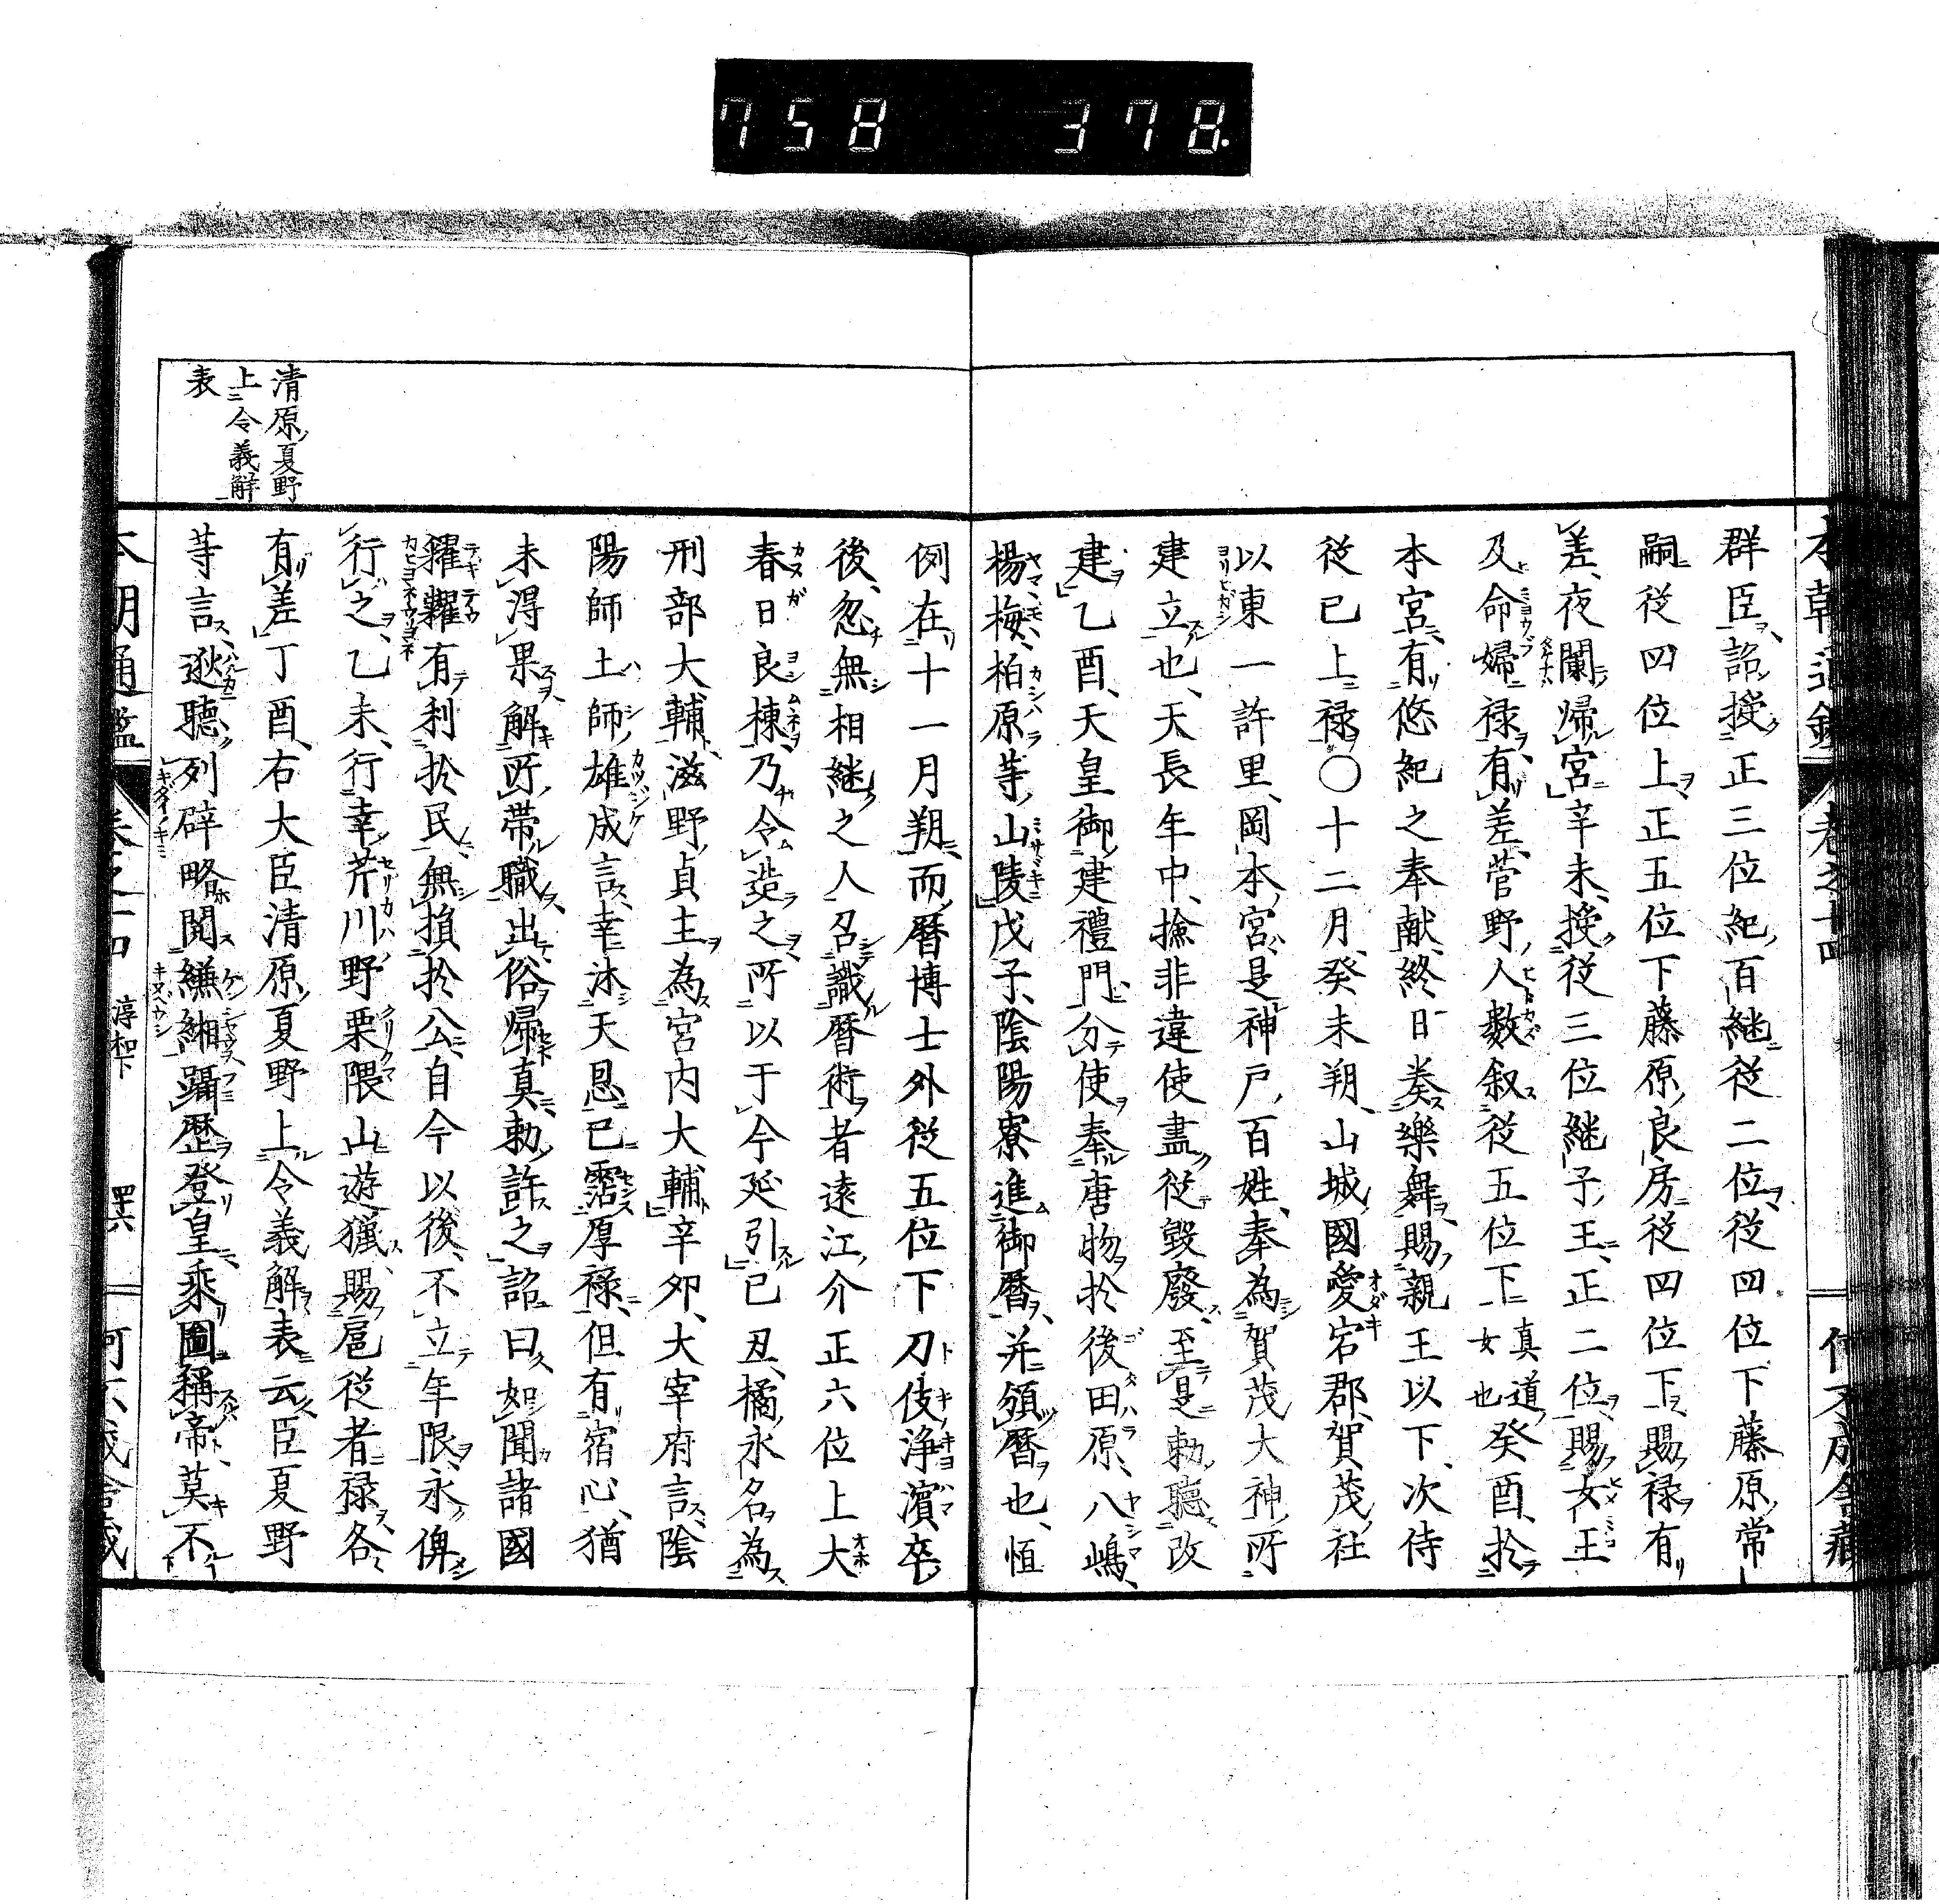 758 378.
群臣詔授正三位紀百継従二位従四位下藤原常
嗣従四位上正五位下藤原良房従四位下賜禄有
差夜闌帰宮辛未授従三位継子王正二位賜女王
及命婦禄有差菅野人數叙従五位下真道女也癸酉於
本宮有悠紀之奉献終日奏樂舞賜親王以下次侍
従已上禄〇十二月癸未朔山城國愛宕郡賀茂社
以東一許里岡本宮是神戸百姓奉為賀茂大神所
建立也天長年中撿非違使盡従毀廢至是勅聽改
建乙酉天皇御建禮門分使奉唐物於後田原八嶋
楊梅柏原等山陵戊子陰陽寮進御暦并頒暦也恒
例在十一月朔而暦博士外従五位下刀伎浄濱卒
後忽無相継之人召識暦術者遠江介正六位上大
春日良棟乃令造之所以于今延引已丑橘永名為
刑部大輔滋野貞主為宮内大輔辛卯大宰府言陰
陽師土師雄成言幸沐天恩已霑厚禄但有宿心猶
未得果解所帯職出俗帰真勅許之詔曰如聞諸國
糴糶有利於民無損於公自今以後不立年限永俾
行之乙未行幸芹川野栗隈山遊獵賜扈従者禄各
有差丁酉右大臣清原夏野上令義解表云臣夏野
等言逖聽列辟略閲縑緗躡歴登皇乘圖稱帝莫不
清原夏野
上令義解
表
本朝通鑑 巻之十四 淳和下 四六